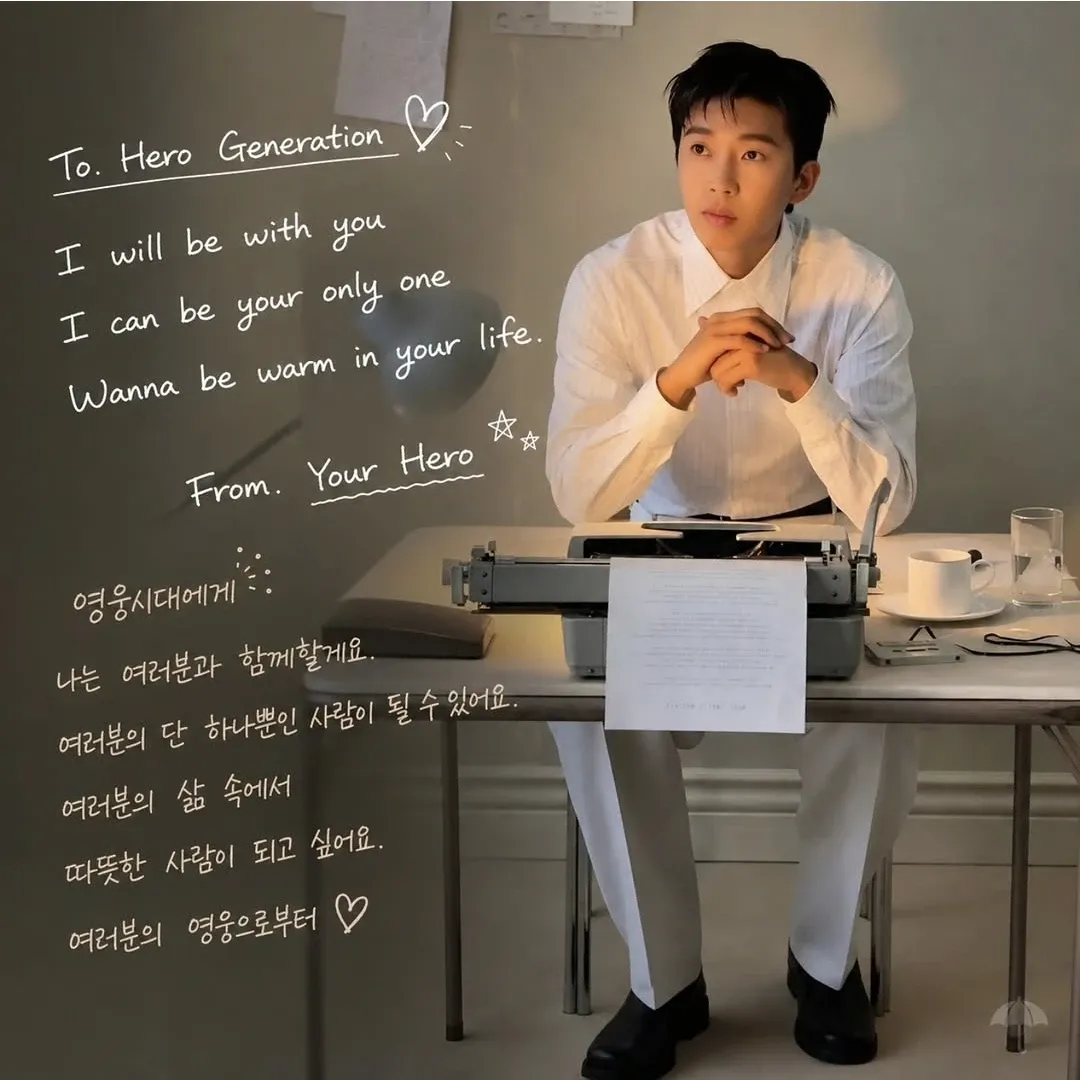 To. Hero Generation
I will be with you
I can be your only one
Wanna be warm in your life.
From. Your Hero
영웅시대에게
나는 여러분과 함께할게요.
여러분의 단 하나뿐인 사람이 될 수 있어요.
여러분의 삶 속에서
따뜻한 사람이 되고 싶어요.
여러분의 영웅으로부터